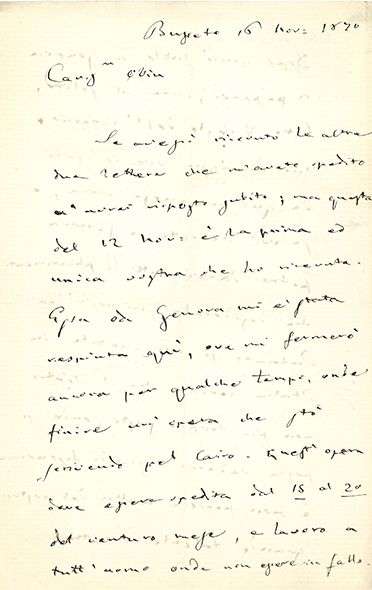 Busseto 16 Nov: 1870
Cariss
Se avessi ricevuto le altre
due lettere che m'avete spedito
v'avrei risposto subito; ma questa
del 12 Nov: è la prima ed
unica vostra che ho ricevuta.
Essa da Genova mi è stata
respinta quì, ove mi fermerò
ancora per qualche tempo, onde
finire un'opera che stò
scrivendo pel Cairo. Quest'opera
deve essere spedita dal 15 al 20
del venturo mese, e lavoro a
tutt'uomo onde non essere in fallo.